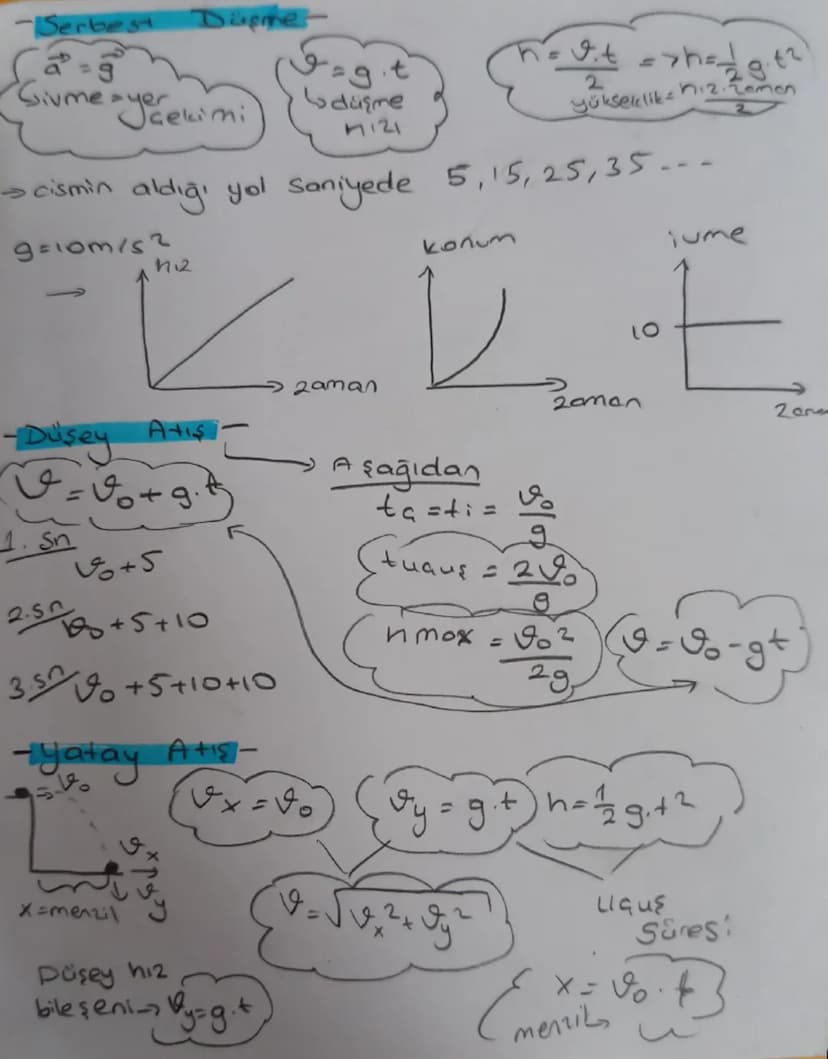 -Serbest Düşme-
a⃗ = g⃗
Sivme = yer
çekimi
ϑ = g.t
↳ düşme
hızı
h = ϑ.t/2 => h = 1/2 g.t²
yükseklik = hız.zaman/2
→ cismin aldığı yol saniyede 5, 15, 25, 35 ---
g=10m/s²
→
hız
zaman
konum
zaman
ivme
10
-Düşey Atış-
ϑ = ϑ₀ + g.t
1. sn
ϑ₀ + 5
2.sn ϑ₀ + 5 + 10
3.sn ϑ₀ + 5 + 10 + 10
→ Aşağıdan
tç = ti = ϑ₀/g
tuçuş = 2ϑ₀/g
hmax = ϑ₀²/2g
ϑ = ϑ₀ - gt
-Yatay Atış-
ϑ₀
ϑx
ϑy
x = menzil
ϑx = ϑ₀
ϑy = g.t
h = 1/2 g.t²
ϑ = √ϑx² + ϑy²
Uçuş
Süresi
Düşey hız
bileşeni → ϑy = g.t
x = ϑ₀ . t
menzil